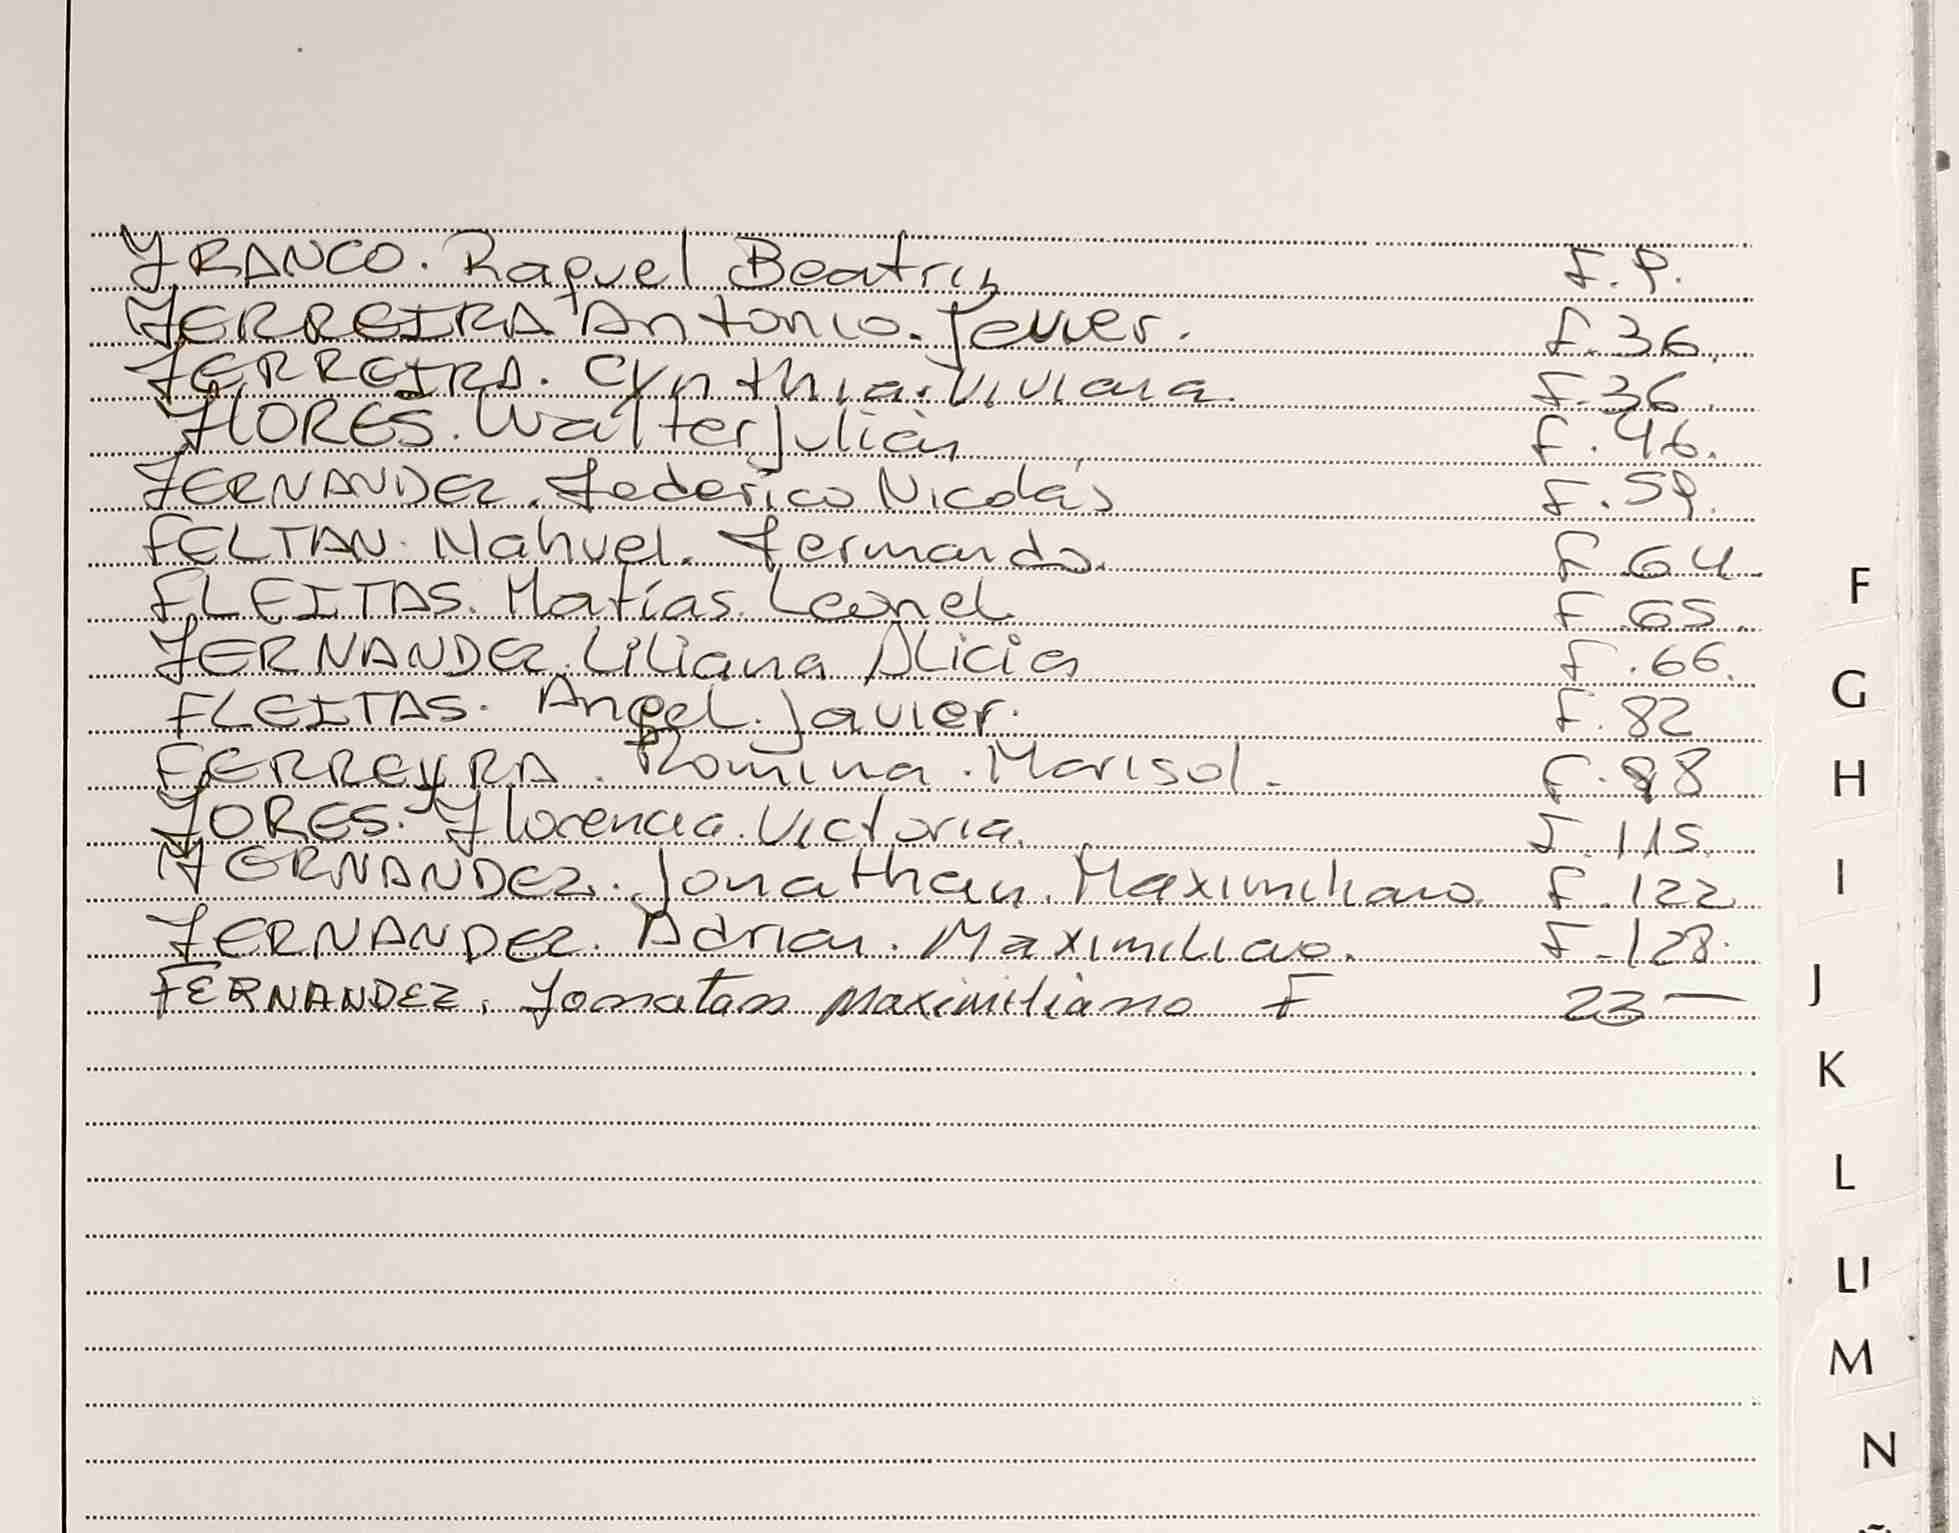 FRANCO. Raquel Beatriz F. 9.
FERREIRA Antonio. Javier. F. 36.
FERREIRA. Cynthia. Viviana. F. 36.
FLORES. Walter Julián F. 46.
FERNANDEZ. Federico Nicolás F. 59.
FELTAN. Nahuel. Fernando. F. 64.
FLEITAS. Matías. Leonel. F. 65.
FERNANDEZ. Liliana Alicia F. 66.
FLEITAS. Angel. Javier. F. 82
FERREYRA. Romina. Marisol. F. 98
FORES. Florencia. Victoria. F. 115.
FERNANDEZ. Jonathan. Maximiliano. F. 122
FERNANDEZ. Adrian. Maximiliano. F. 128.
FERNANDEZ. Jonatan Maximiliano F 23 —
F
G
H
I
J
K
L
Ll
M
N